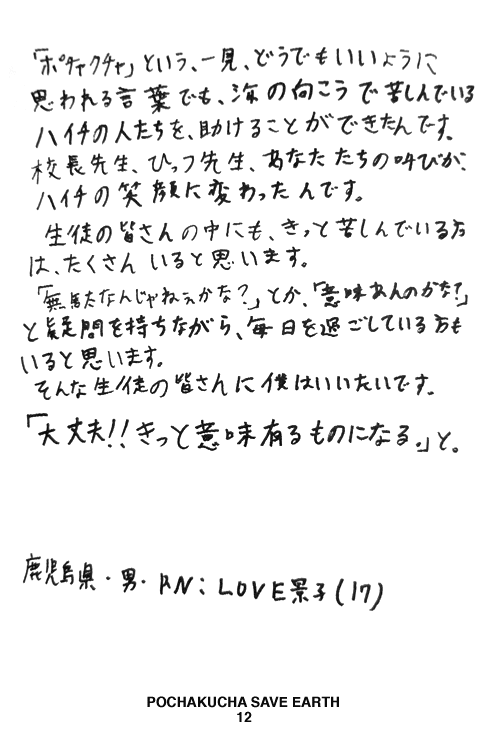 「ポチャクチャ」という、一見、どうでもいいように
思われる言葉でも、海の向こうで苦しんでいる
ハイチの人たちを、助けることができたんです。
校長先生、ひっつ先生、あなたたちの叫びが、
ハイチの笑顔に変わったんです。
生徒の皆さんの中にも、きっと苦しんでいる方
は、たくさんいると思います。
「無駄なんじゃねえかな？」とか、「意味あんのかな？」
と疑問を持ちながら、毎日を過ごしている方も
いると思います。
そんな生徒の皆さんに僕はいいたいです。
「大丈夫!!きっと意味有るものになる。」と。
鹿児島県・男・RN:LOVE景子(17)
POCHAKUCHA SAVE EARTH
12